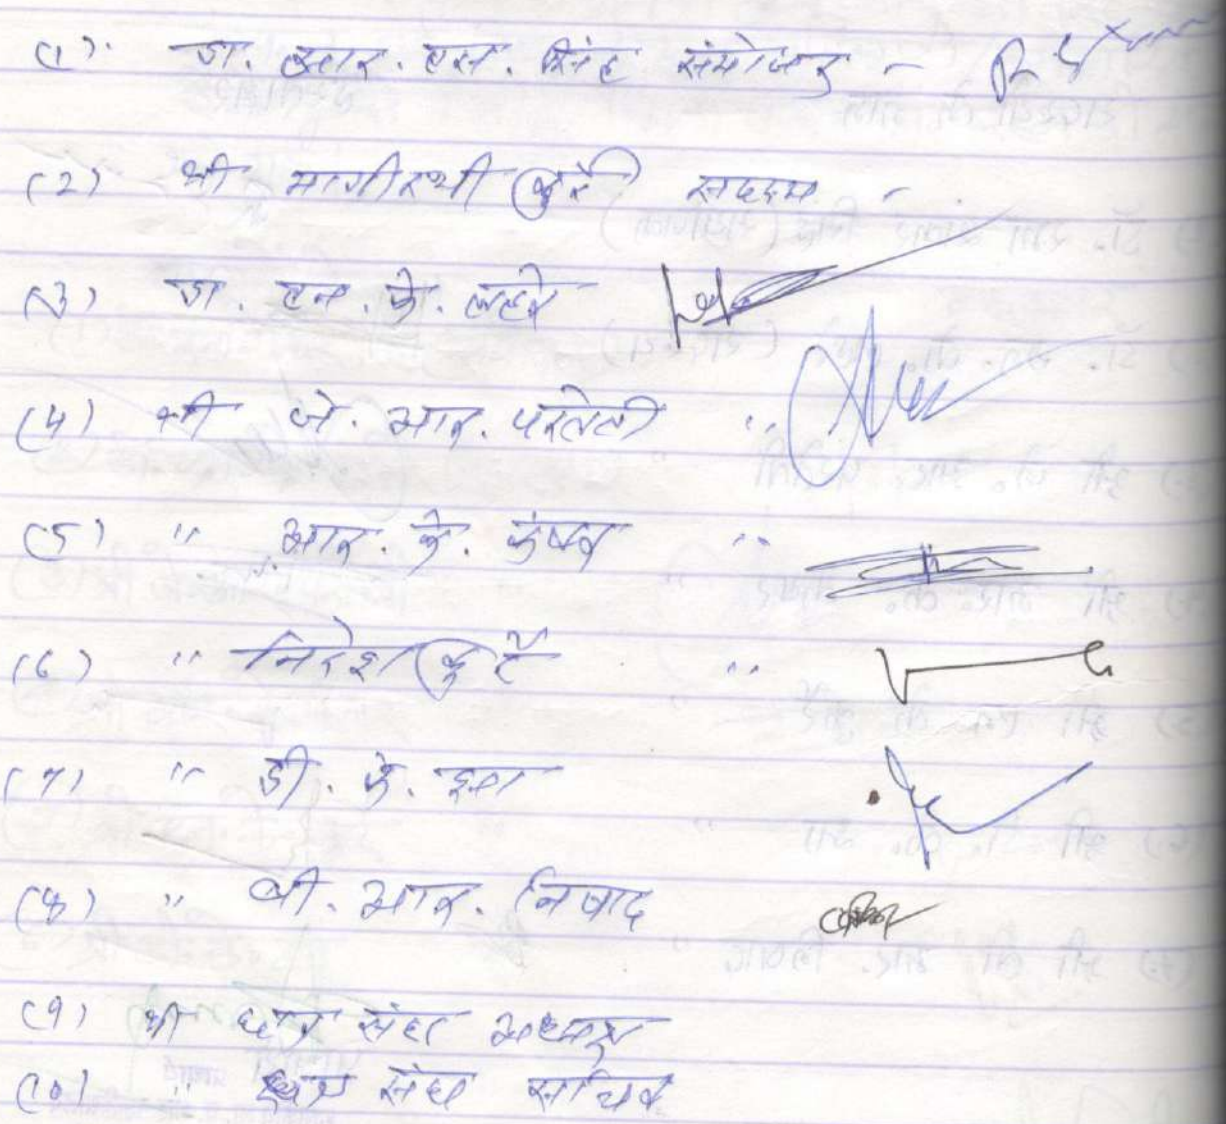 (1). डा. आर. एस. सिंह संयोजक -
(2) श्री भागीरथी कुर्रे सदस्य -
(3) डा. एन. के. लहरे
(4) श्री जे. आर. परतेती "
(5) " आर. के. "
(6) " कुर्रे "
(7) " डी. के. झा
(8) " बी. आर. निषाद
(9) श्री छात्र संघ अध्यक्ष
(10) " छात्र संघ सचिव